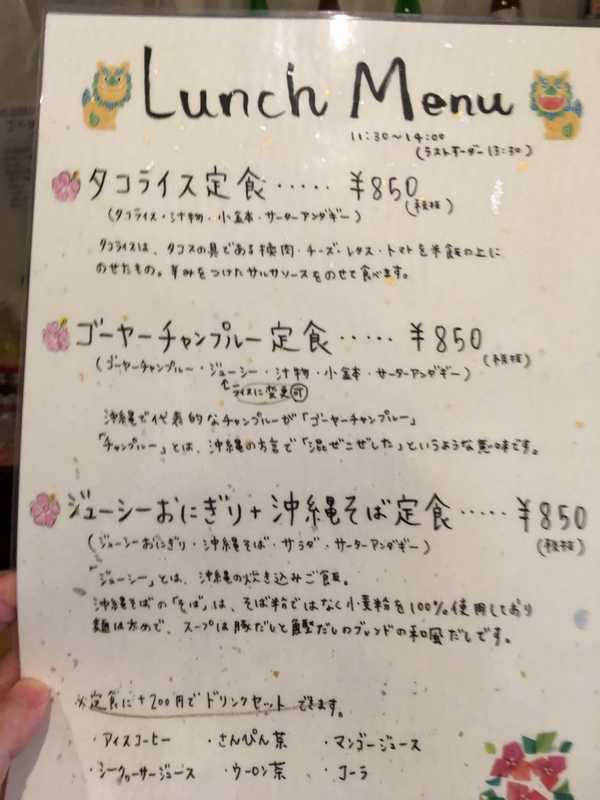 Lunch Menu
11:30〜14:00
(ラストオーダー 13:30)
タコライス定食‥‥‥ ¥850
(税抜)
(タコライス・汁物・小鉢・サーターアンダギー)
タコライスは、タコスの具である挽肉・チーズ・レタス・トマトを米飯の上に
のせたもの。辛みをつけたサルサソースをのせて食べます。
ゴーヤーチャンプルー定食‥‥‥ ¥850
(税抜)
(ゴーヤーチャンプルー・ジューシー・汁物・小鉢・サーターアンダギー)
ライスに変更可
沖縄で代表的なチャンプルーが「ゴーヤーチャンプルー」
「チャンプルー」とは、沖縄の方言で「混ぜこぜした」というような意味です。
ジューシーおにぎり+沖縄そば定食‥‥‥ ¥850
(税抜)
(ジューシーおにぎり・沖縄そば・サラダ・サーターアンダギー)
「ジューシー」とは、沖縄の炊き込みご飯。
沖縄そばの「そば」は、そば粉ではなく小麦粉を100%使用しており
麺は太めで、スープは豚だしと鰹だしのブレンドの和風だしです。
※定食に+200円でドリンクセットできます。
・アイスコーヒー ・さんぴん茶 ・マンゴージュース
・シークヮーサージュース ・ウーロン茶 ・コーラ